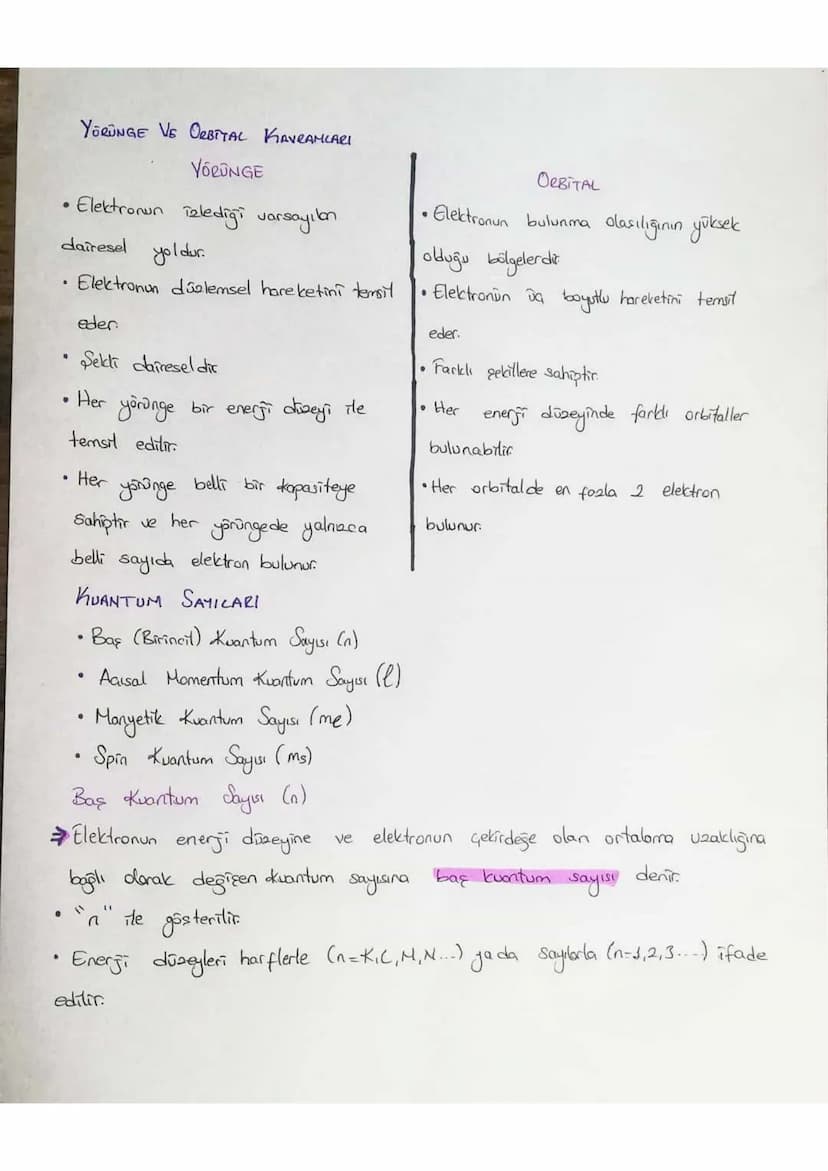 YÖRÜNGE VE ORBİTAL KAVRAMLARI
YÖRÜNGE
• Elektronun izlediği varsayılan
dairesel yoldur.
• Elektronun düzlemsel hareketini temsil
eder.
• Şekli daireseldir
• Her yörünge bir enerji düzeyi ile
temsil edilir.
• Her yörünge belli bir kapasiteye
sahiptir ve her yörüngede yalnızca
belli sayıda elektron bulunur.
ORBİTAL
• Elektronun bulunma olasılığının yüksek
olduğu bölgelerdir
• Elektronün üç boyutlu hareketini temsil
eder.
• Farklı şekillere sahiptir.
• Her enerji düzeyinde farklı orbitaller
bulunabilir
• Her orbitalde en fazla 2 elektron
bulunur.
KUANTUM SAYILARI
• Baş (Birincil) Kuantum Sayısı (n)
• Açısal Momentum Kuantum Sayısı (ℓ)
• Manyetik Kuantum Sayısı (me)
• Spin Kuantum Sayısı (ms)
Baş Kuantum Sayısı (n)
⇒ Elektronun enerji düzeyine ve elektronun çekirdeğe olan ortalama uzaklığına
bağlı olarak değişen kuantum sayısına baş kuantum sayısı denir.
• "n" ile gösterilir.
• Enerji düzeyleri harflerle (n=K,L,M,N...) ya da sayılarla (n=1,2,3....) ifade
edilir.